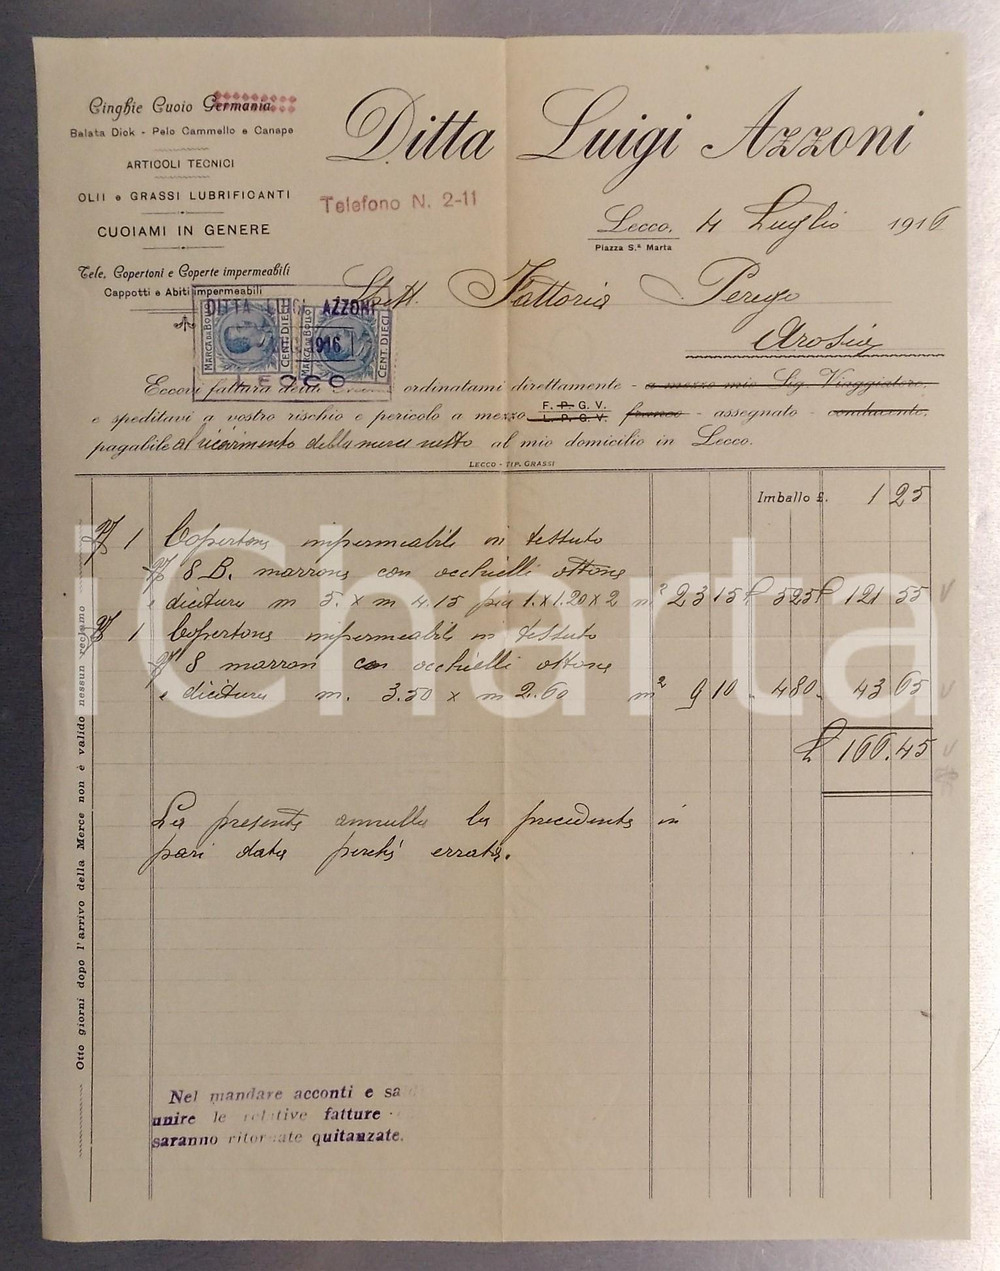 Cinghie Cuoio Germania
Balata Dick - Pelo Cammello e Canape
ARTICOLI TECNICI
OLII e GRASSI LUBRIFICANTI
CUOIAMI IN GENERE
Tele, Copertoni e Coperte impermeabili
Cappotti e Abiti impermeabili
Ditta Luigi Azzoni
Telefono N. 2-11
Lecco, 4 Luglio 1916
Piazza S.ª Marta
Spett. Fattoria Perego
Arosio
MARCA DA BOLLO CENT. DIECI MARCA DA BOLLO CENT. DIECI
DITTA LUIGI AZZONI
1916
LECCO
Eccovi fattura della ordinatami direttamente - a mezzo mio Sig. Viaggiatore,
e speditavi a vostro rischio e pericolo a mezzo F. P. G. V. L. P. G. V. franco - assegnato - conducente,
pagabile al ricevimento della merce netto al mio domicilio in Lecco.
LECCO - TIP. GRASSI
Imballo £. 1 25
1 Copertone impermeabile in tessuto
8 B. marrone con occhielli ottone
e dicitura m 5. x m 4.15 più 1. x 1.20 x 2 m² 23 15 £ 5 25 £ 121 55
1 Copertone impermeabile in tessuto
8 marron con occhielli ottone
e dicitura m. 3.50 x m 2.60 m² 9 10 4 80 43 65
£ 166.45
La presente annulla la precedente in
pari data perchè errata.
Otto giorni dopo l'arrivo della Merce non è valido nessun reclamo
Nel mandare acconti e sa
unire le relative fatture
saranno ritornate quitanzate.
iCharta